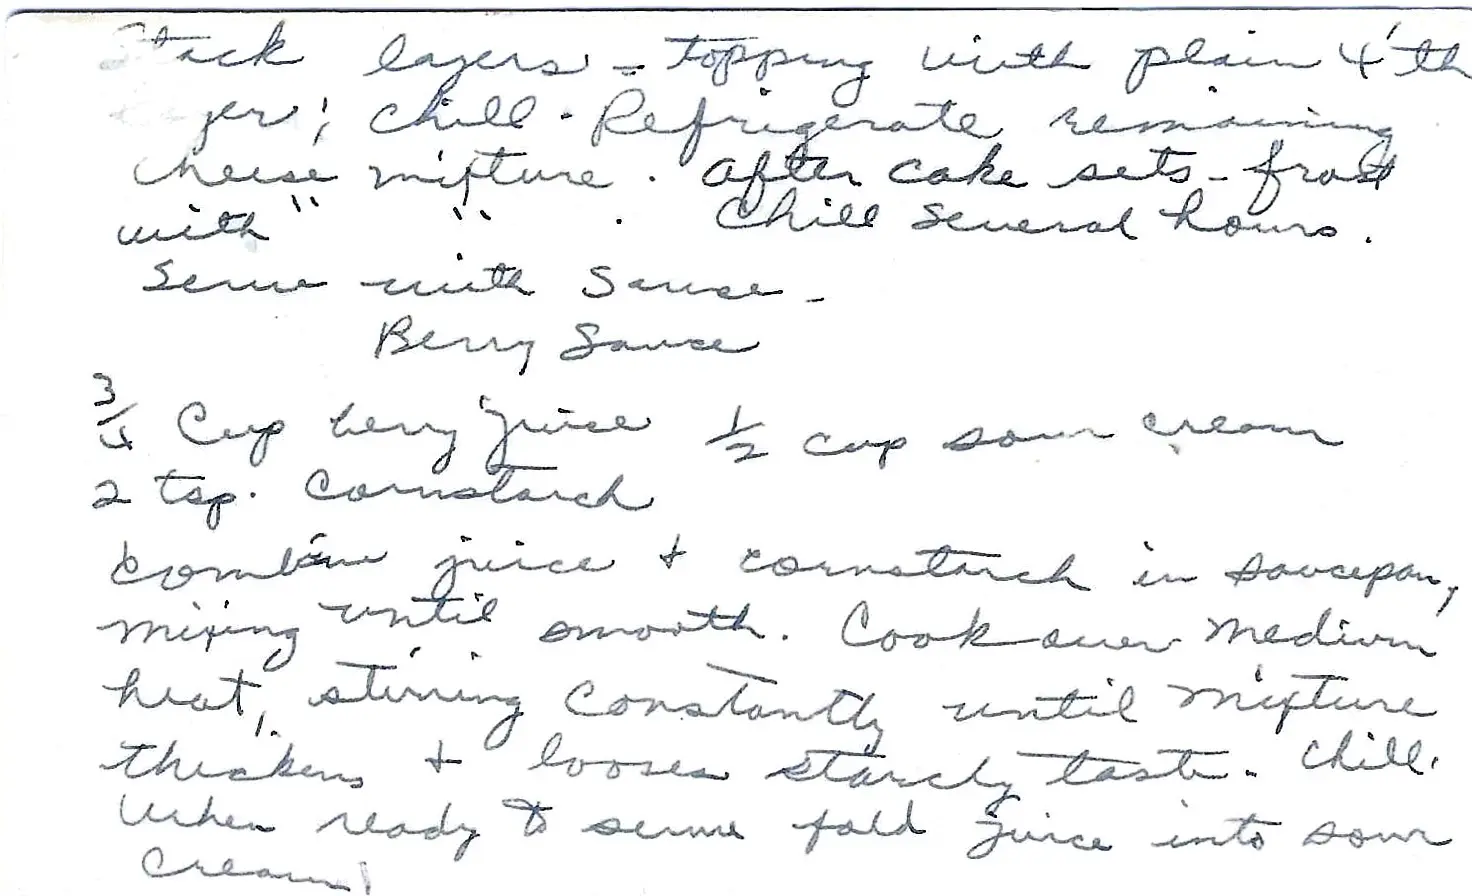 Stack layers - topping with plain 4'th
layer; chill. Refrigerate remaining
cheese mixture. After cake sets - frost
with " " . Chill several hours.
Serve with Sauce -
Berry Sauce
3/4 Cup berry juice 1/2 cup sour cream
2 tsp. Cornstarch
Combine juice + cornstarch in saucepan,
mixing until smooth. Cook over medium
heat, stirring constantly until mixture
thickens + looses starchy taste. Chill.
When ready to serve fold juice into sour
cream!